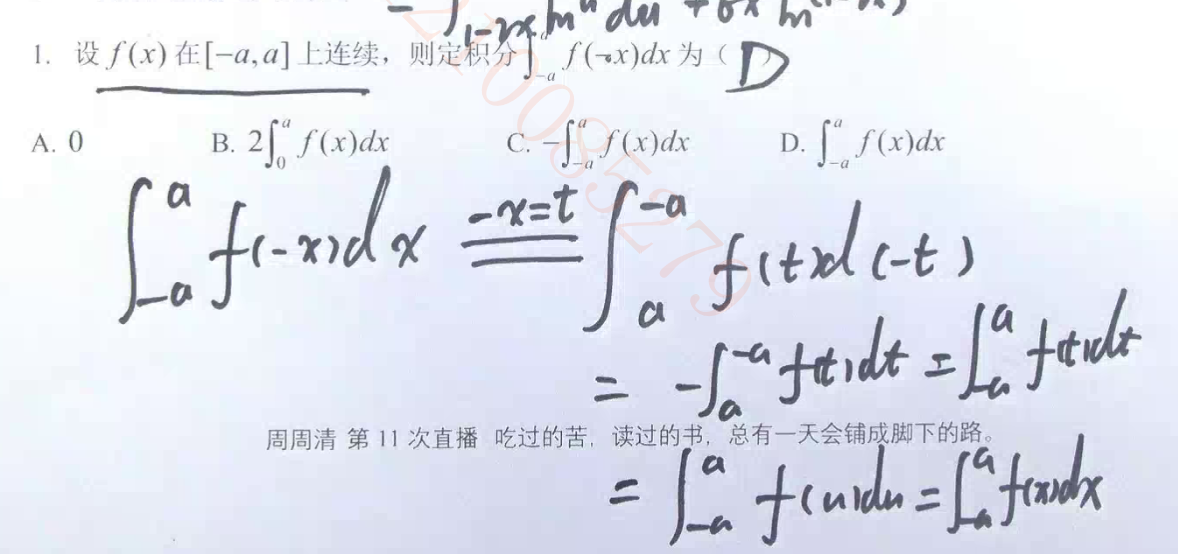 = ∫1-2x ln u du + 6x ln(1-2x)
1. 设 f(x) 在[-a,a]上连续，则定积分∫_{-a}^{a} f(-x)dx 为（ D ）
A. 0 B. 2∫_0^a f(x)dx C. -∫_{-a}^a f(x)dx D. ∫_{-a}^a f(x)dx
∫_{-a}^a f(-x)dx \xlongequal{-x=t} ∫_a^{-a} f(t)d(-t)
= -∫_a^{-a} f(t)dt = ∫_{-a}^a f(t)dt
周周清 第 11 次直播 吃过的苦，读过的书，总有一天会铺成脚下的路。
= ∫_{-a}^a f(u)du = ∫_{-a}^a f(x)dx